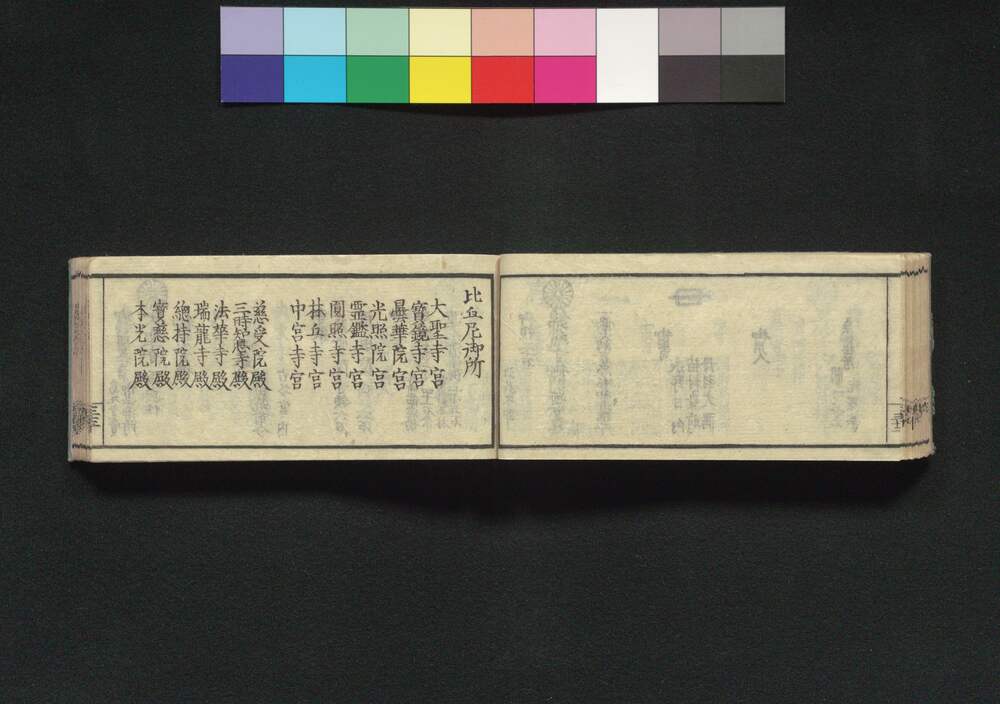 比丘尼御所
大聖寺宮
寳鏡寺宮
曇華院宮
光照院宮
霊鑑寺宮
圓照寺宮
林丘寺宮
中宮寺宮
慈受院殿
三時知恩寺殿
法華寺殿
瑞龍寺殿
總持院殿
寳慈院殿
本光院殿
三十三